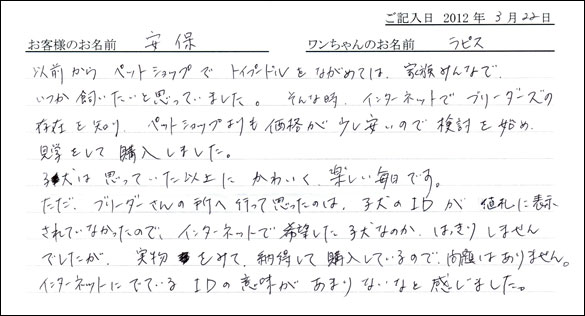 ご記入日 2012年 3月 22日
お客様のお名前 安保 ワンちゃんのお名前 ラピス
以前から ペットショップで トイプードルを ながめては、家族みんなで、
いつか 飼いたいと思っていました。 そんな時、インターネットで ブリーダーズの
存在を知り、ペットショップよりも 価格が 少し安いので 検討を始め、
見学をして 購入しました。
子犬は 思っていた以上に かわいく、楽しい毎日です。
ただ、ブリーダーさんの所へ 行って思ったのは、子犬の ID が 値札に表示
されていなかったので、インターネットで 希望した子犬なのか、はっきりしません
でしたが、 実物 をみて、納得して 購入しているので、問題はありません。
インターネットに でている IDの意味が あまりないなと 感じました。